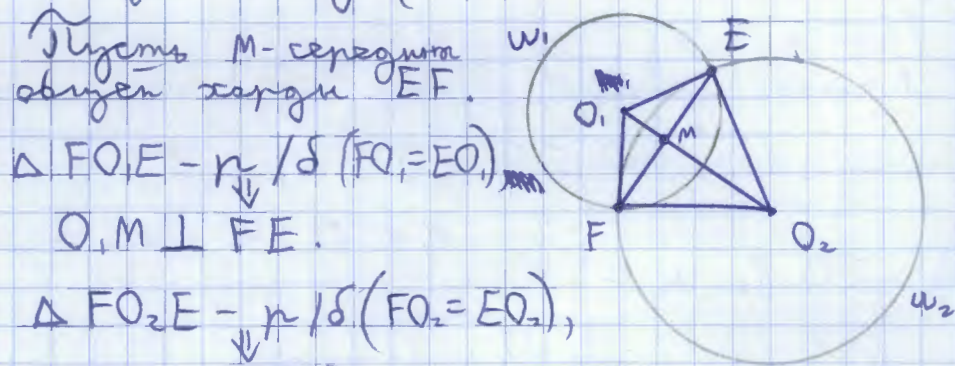 Пусть M - середина
общей хорды EF.
△ FO₁E - р/б (FO₁=EO₁)
⇓
O₁M ⊥ FE.
△ FO₂E - р/б (FO₂=EO₂),
⇓
w₁
E
O₁
M
F
O₂
w₂